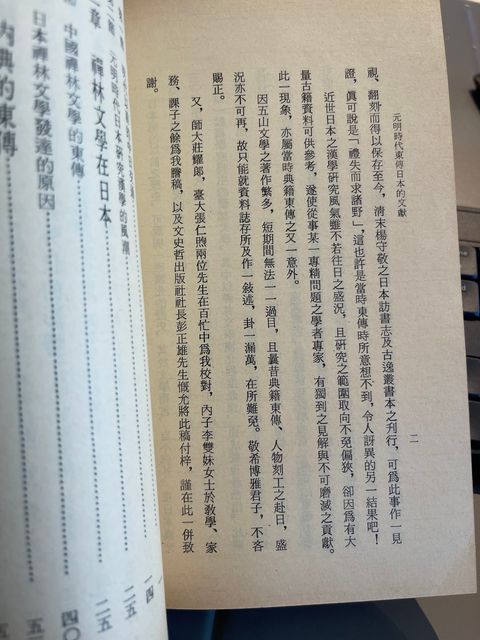 元明時代東傳日本的文獻
二
視、翻刻而得以保存至今，淸末楊守敬之日本訪書志及古逸叢書本之刊行，可爲此事作一見
證，眞可說是「禮失而求諸野」，這也許是當時東傳時所意想不到，令人訝異的另一結果吧！
近世日本之漢學硏究風氣雖不若往日之盛況，且硏究之範圍取向不免偏狹，卻因爲有大
量古籍資料可供參考，遂使從事某一專精問題之學者專家，有獨到之見解與不可磨滅之貢獻。
此一現象，亦屬當時典籍東傳之又一意外。
因五山文學之著作繁多，短期間無法一一過目，且曩昔典籍東傳、人物刻工之赴日，盛
況亦不可再，故只能就資料誌存所及作一敍述，卦一漏萬，在所難免。敬希博雅君子，不吝
賜正。
又，師大莊耀郞，臺大張仁煦兩位先生在百忙中爲我校對，內子李雙妹女士於敎學、家
務、課子之餘爲我謄稿，以及文史哲出版社社長彭正雄先生慨允將此稿付梓，謹在此一併致
謝。
元明時代日本硏究漢學的風潮
一四
章 禪林文學在日本
二五
中國禪林文學的東傳
二五
日本禪林文學發達的原因
四〇
內典的東傳
五